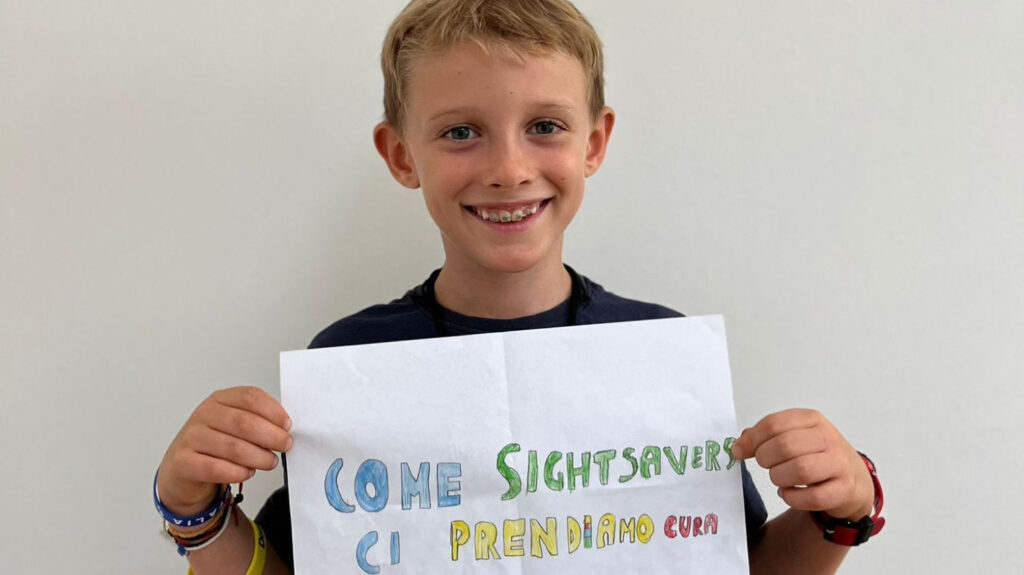 COME SIGHTSAVERS
CI PRENDIAMO CURA
ITALIA